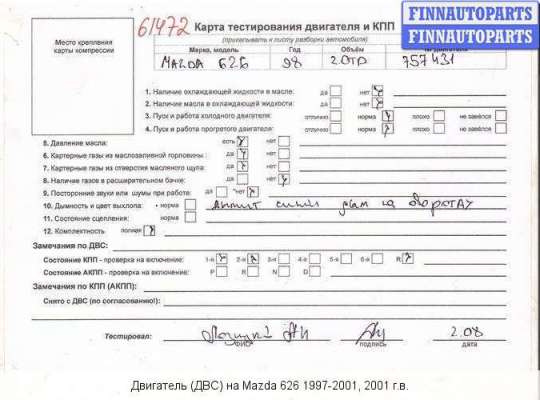 61472
Карта тестирования двигателя и КПП
FINNAUTOPARTS
FINNAUTOPARTS
(прикалывать к листу разборки автомобиля)
Место крепления карты компрессии
Марка, модель Год Объём № двигателя
MAZDA 626 98 2.0TD 757431
1. Наличие охлаждающей жидкости в масле: да нет
2. Наличие масла в охлаждающей жидкости: да нет
3. Пуск и работа холодного двигателя: отлично норма плохо не завёлся
4. Пуск и работа прогретого двигателя: отлично норма плохо не завёлся
5. Давление масла: есть нет
6. Картерные газы из маслозаливной горловины: да нет
7. Картерные газы из отверстия масляного щупа: да нет
8. Наличие газов в расширительном бачке: да нет
9. Посторонние звуки или шумы при работе: да нет
10. Дымность и цвет выхлопа: норма дымит синий дым на оборотах
11. Состояние сцепления: норма
12. Комплектность полная
Замечания по ДВС:
Состояние КПП - проверка на включение: 1-я 2-я 3-я 4-я 5-я 6-я R
Состояние АКПП - проверка на включение: P R N D
Замечания по КПП (АКПП):
Снято с ДВС (по согласованию!):
Тестировал: 2.08
ФИО подпись дата
Двигатель (ДВС) на Mazda 626 1997-2001, 2001 г.в.